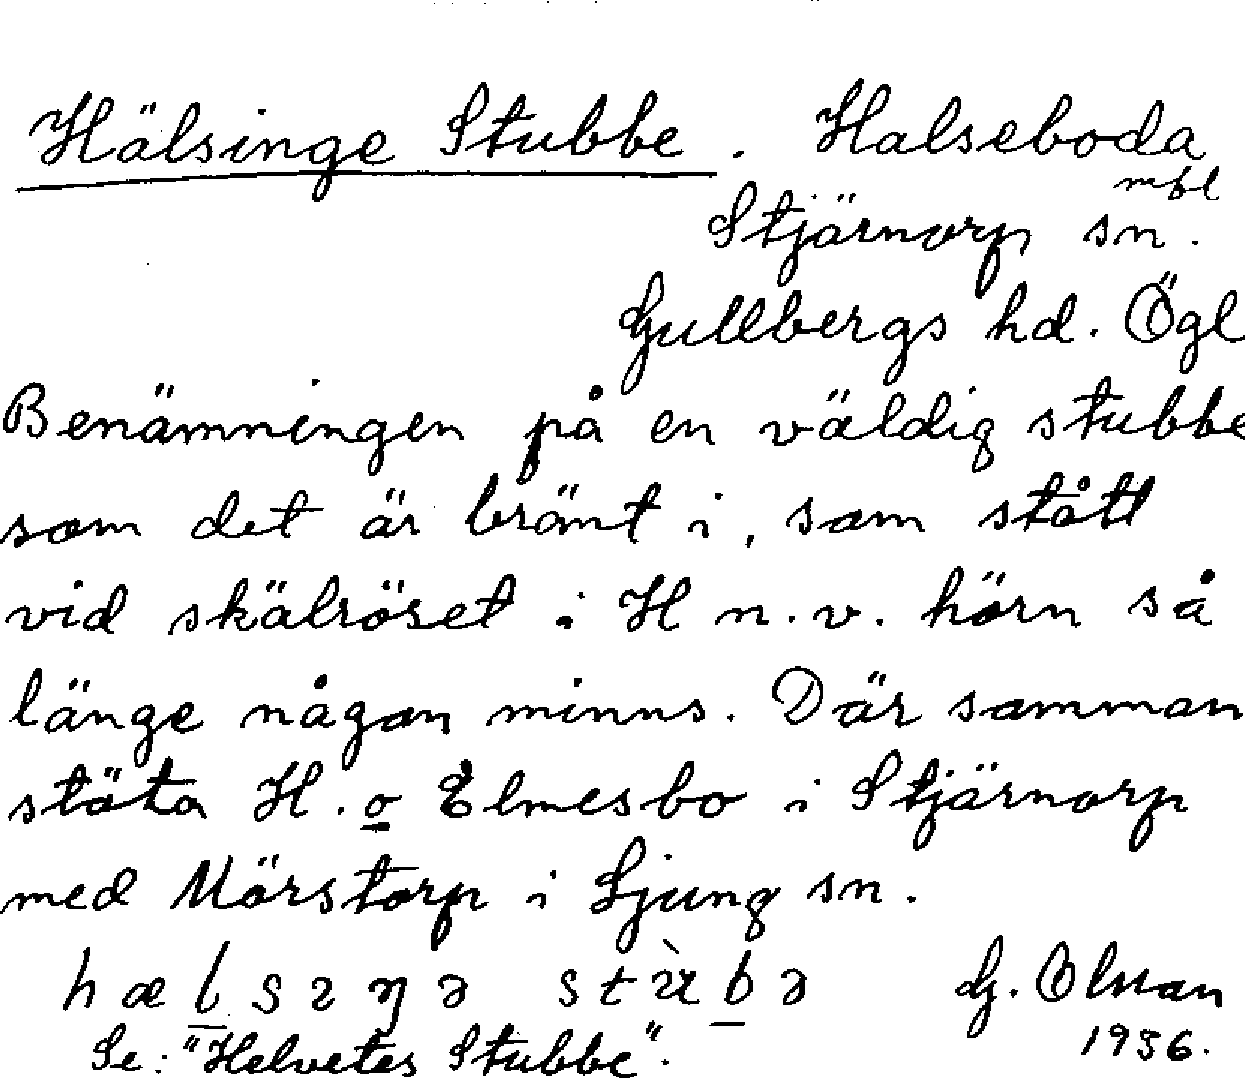 Hälsinge Stubbe. Halseboda
mbl
Stjärnorp sn.
Gullbergs hd. Ögl
Benämningen på en väldig stubbe
som det är bränt i, som stått
vid skälröset i H n.v. hörn så
länge någon minns. Där samman
stöta H. o Elmesbo i Stjärnorp
med Mörstorp i Ljung sn.
hælsıŋə stùbə G. Olman
Se: "Helvetes Stubbe". 1936.